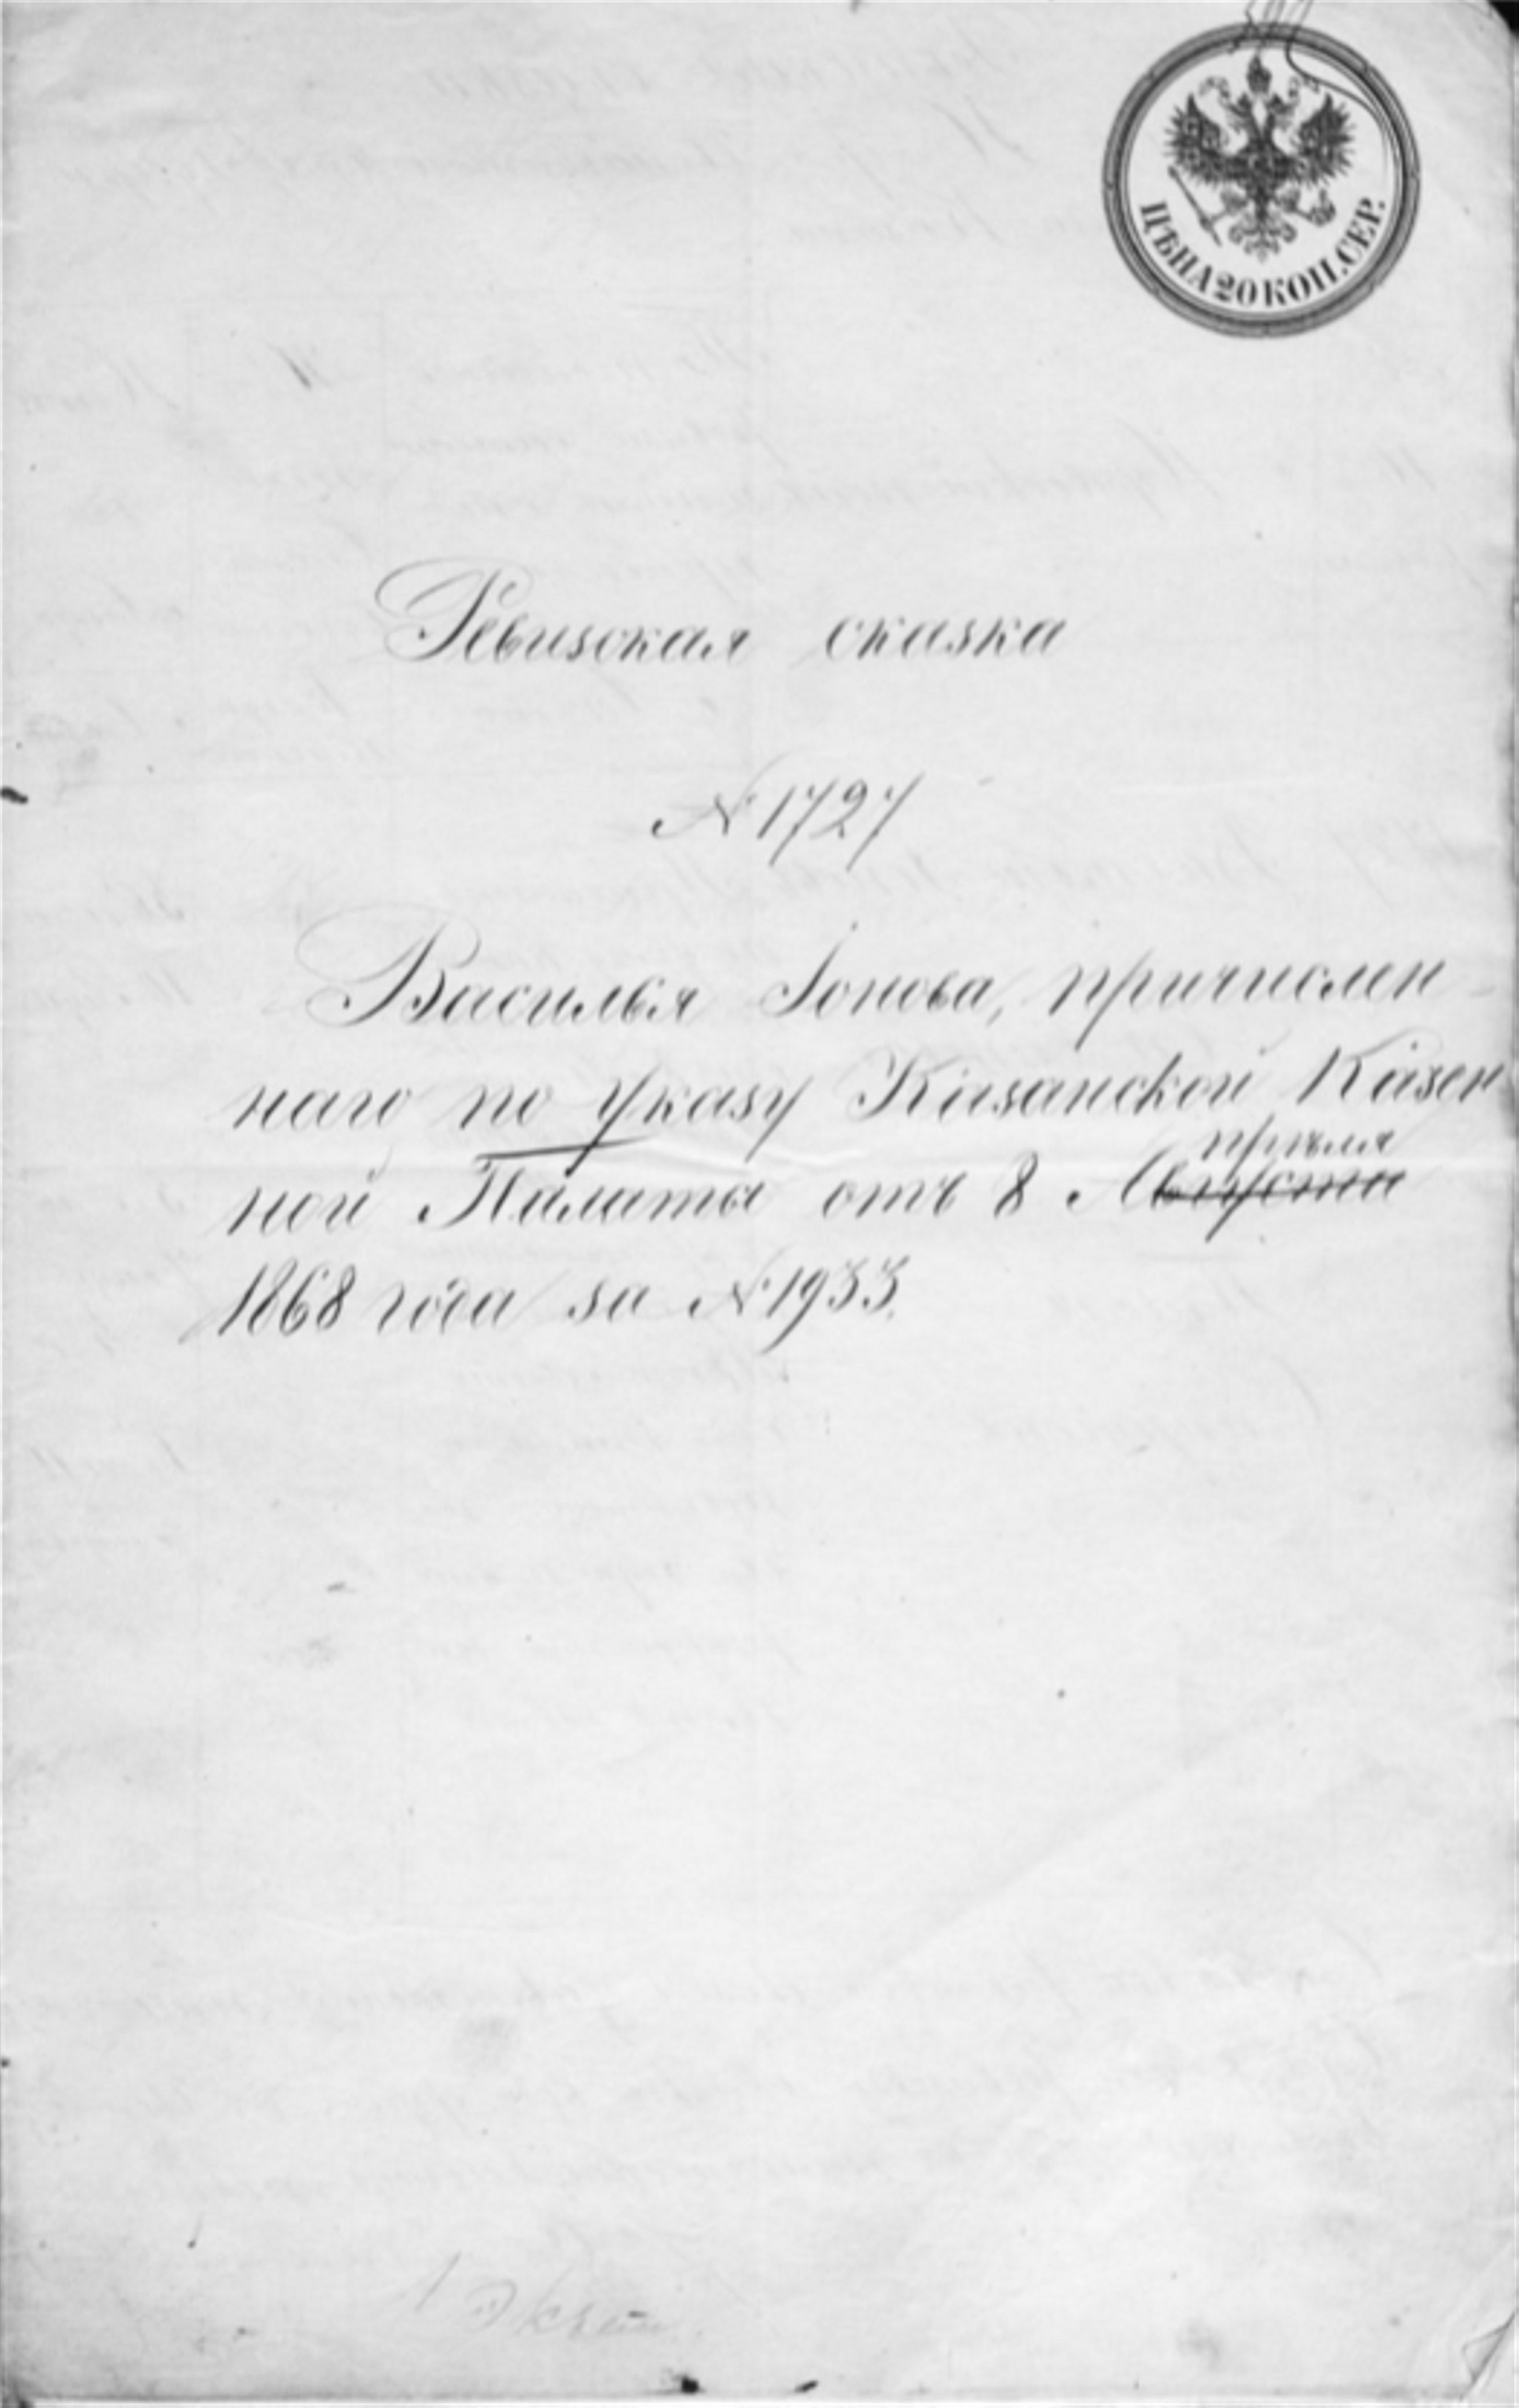 ЦѢНА 20 КОП. СЕР.
Ревизская сказка
№ 1727
Василья Іонова, причислен-
наго по указу Казанской Казен
ной Палаты отъ 8 Августа
прѣля
1868 года за № 1933.